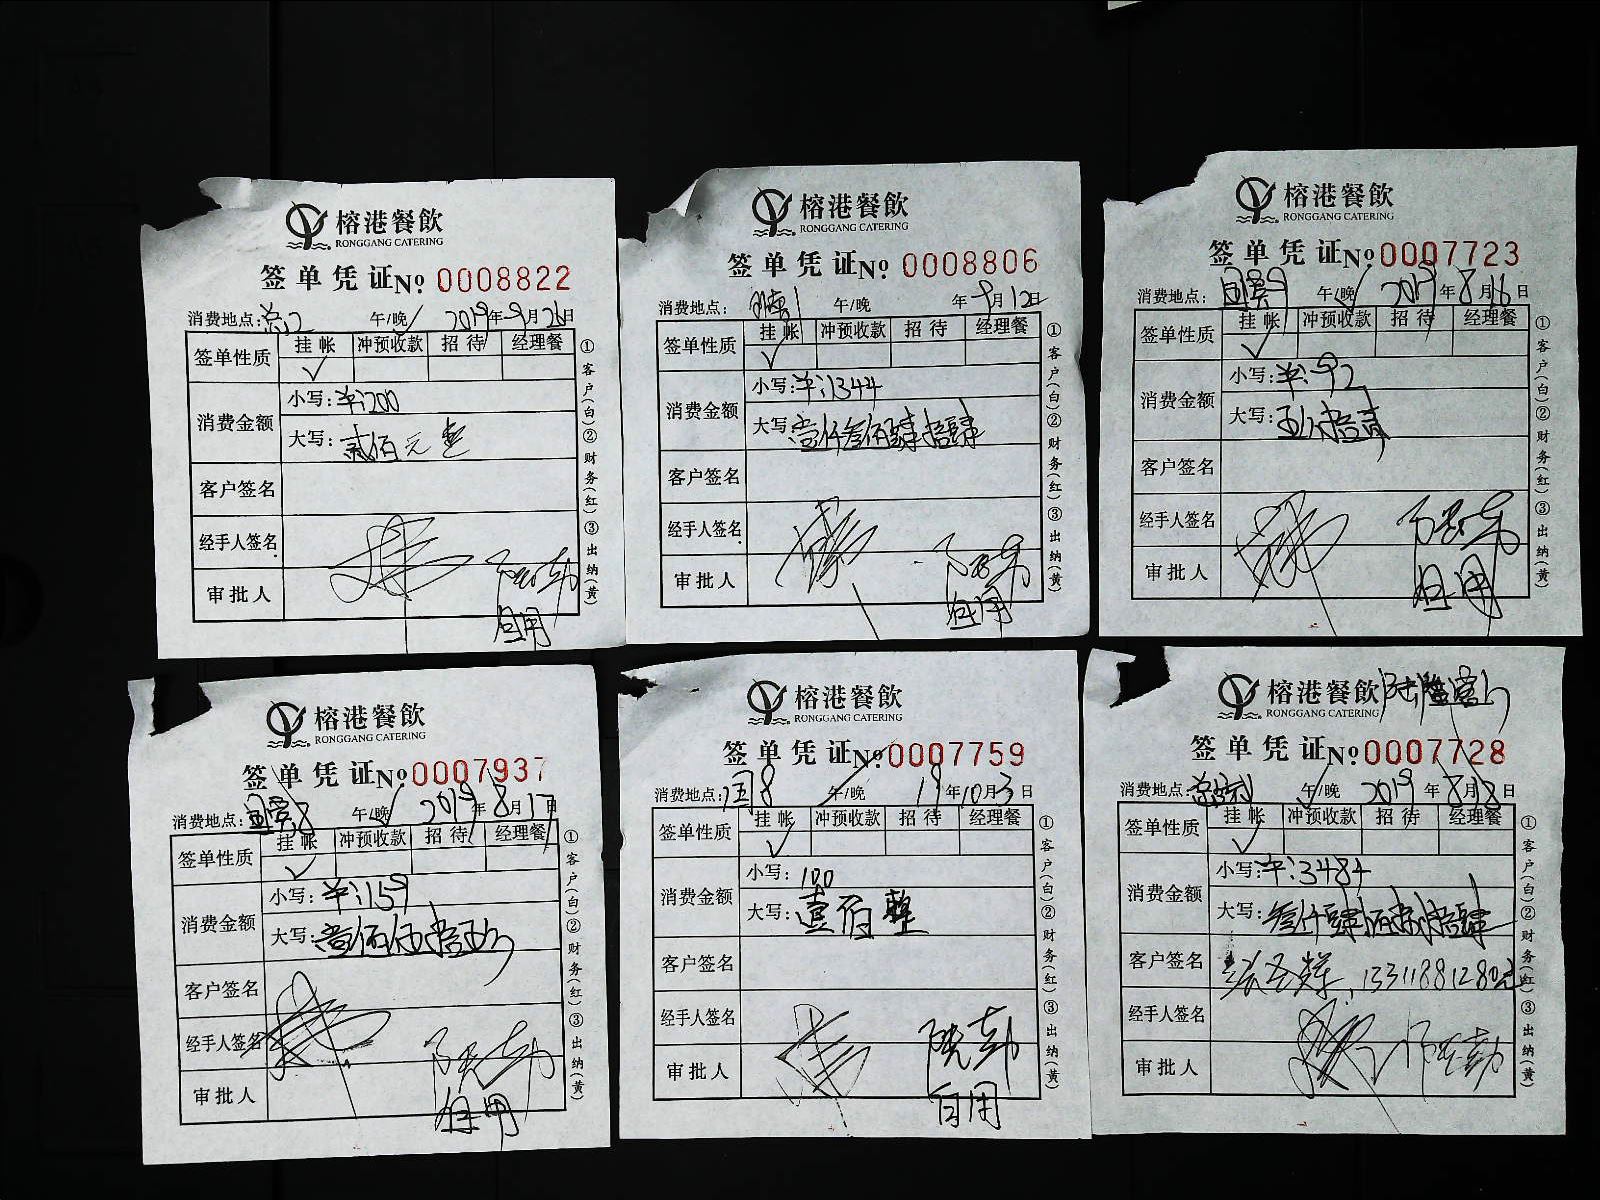 榕港餐飲
RONGGANG CATERING
签单凭证No 0008822
消费地点: 午/晚 2019年9月26日
签单性质 挂帐 冲预收款 招待 经理餐
✓
消费金额 小写:¥:200
大写:贰佰元整
客户签名
经手人签名
审批人
自用
①客户(白)②财务(红)③出纳(黄)
榕港餐飲
RONGGANG CATERING
签单凭证No 0008806
消费地点: 午/晚 年9月12日
签单性质 挂帐 冲预收款 招待 经理餐
✓
消费金额 小写:¥:1344
大写:壹仟叁佰肆拾肆
客户签名
经手人签名
审批人
自用
①客户(白)②财务(红)③出纳(黄)
榕港餐飲
RONGGANG CATERING
签单凭证No 0007723
消费地点: 午/晚 2019年8月16日
签单性质 挂帐 冲预收款 招待 经理餐
✓
消费金额 小写:¥:92
大写:玖拾贰
客户签名
经手人签名
审批人
自用
①客户(白)②财务(红)③出纳(黄)
榕港餐飲
RONGGANG CATERING
签单凭证No 0007937
消费地点: 午/晚 2019年8月17日
签单性质 挂帐 冲预收款 招待 经理餐
✓
消费金额 小写:¥:159
大写:壹佰伍拾玖
客户签名
经手人签名
审批人
自用
①客户(白)②财务(红)③出纳(黄)
榕港餐飲
RONGGANG CATERING
签单凭证No 0007759
消费地点: 午/晚 19年10月3日
签单性质 挂帐 冲预收款 招待 经理餐
✓
消费金额 小写:100
大写:壹佰整
客户签名
经手人签名
审批人
自用
①客户(白)②财务(红)③出纳(黄)
榕港餐飲
RONGGANG CATERING
签单凭证No 0007728
消费地点: 午/晚 2019年8月8日
签单性质 挂帐 冲预收款 招待 经理餐
✓
消费金额 小写:¥:3484
大写:叁仟肆佰捌拾肆
客户签名 13311881280
经手人签名
审批人
①客户(白)②财务(红)③出纳(黄)